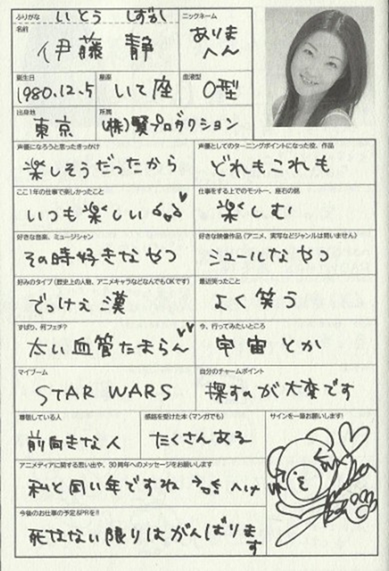 ふりがな いとう しずか
ニックネーム
名前
伊藤 静
ありま
へん
誕生日 星座 血液型
1980.12.5 いて座 O型
出身地 所属
東京 (株)賢プロダクション
声優になろうと思ったきっかけ
楽しそうだったから
声優としてのターニングポイントになった役、作品
どれもこれも
ここ1年の仕事で楽しかったこと
いつも楽しい
仕事をする上でのモットー、座右の銘
楽しむ
好きな音楽、ミュージシャン
その時好きなやつ
好きな映像作品(アニメ、実写などジャンルは問いません)
シュールなやつ
好みのタイプ(歴史上の人物、アニメキャラなどなんでもOKです)
でっけぇ漢
最近笑ったこと
よく笑う
ずばり、何フェチ?
太い血管たまらん
今、行ってみたいところ
宇宙とか
マイブーム
STAR WARS
自分のチャームポイント
探すのが大変です
尊敬している人
前向きな人
感銘を受けた本(マンガでも)
たくさんある
サインを一筆お願いします!
アニメディアに関する思い出や、30周年へのメッセージをお願いします
私と同い年ですね
今後のお仕事の予定&PRを!!
死なない限りはがんばります